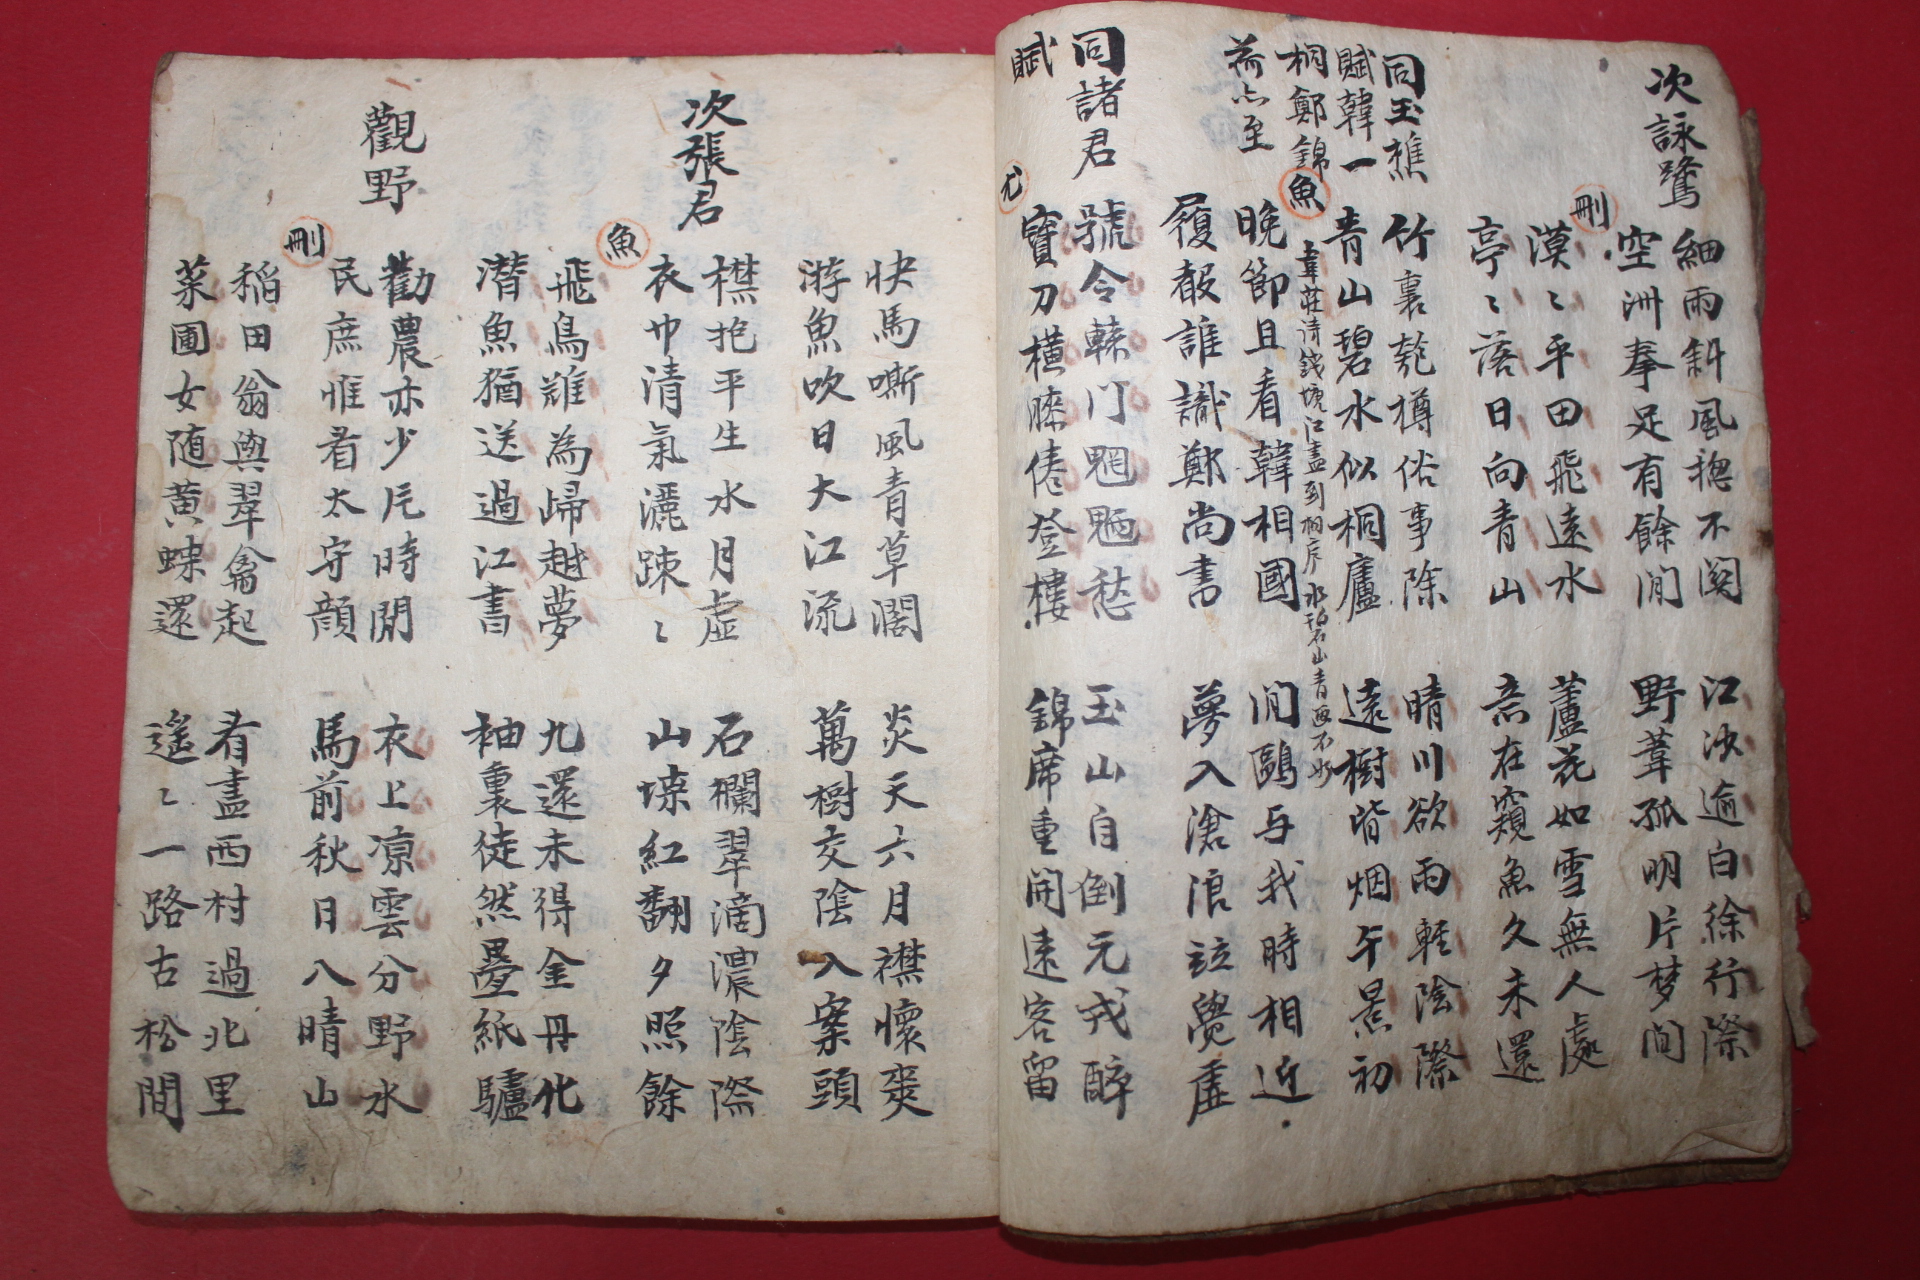 次詠鷺
細雨斜風捴不関 江決逾白徐行際
空洲拳足有餘閒 野葦孤明片梦间
刪
漠〻平田飛遠水 蘆花如雪無人處
亭〻落日向青山 意在窺魚久未還
同玉樵
賦韓一
桐鄭錦
荷亦至
魚
竹裏匏樽俗事除 晴川欲雨軽陰際
青山碧水似桐廬 遠樹皆烟午景初
韋莊诗錢塘江盡到桐庐水碧山青画不如
晚節且看韓相國 间鷗与我時相近
履声誰識鄭尚書 夢入滄浪竝覺虛
同諸君
賦
尤
號令轅门魍魎愁 玉山自倒元戎醉
寶刀橫膝倦登樓 錦席重開遠客留
快馬嘶風青草濶 炎天六月襟懷爽
游魚吹日大江流 萬樹交陰入案頭
次張君
魚
襟抱平生水月虛 石欄翠滴濃陰際
衣巾清氣灑踈〻 山堞紅翻夕照餘
飛鳥難為歸越夢 九還未得金丹化
潜魚猶送過江書 袖裏徒然疊紙驢
觀野
刪
勸農亦少片時閒 衣上凉雲分野水
民庶惟看太守顔 馬前秋日八晴山
稻田翁與翠禽起 看盡西村過北里
菜圃女随黄蝶還 遙〻一路古松間